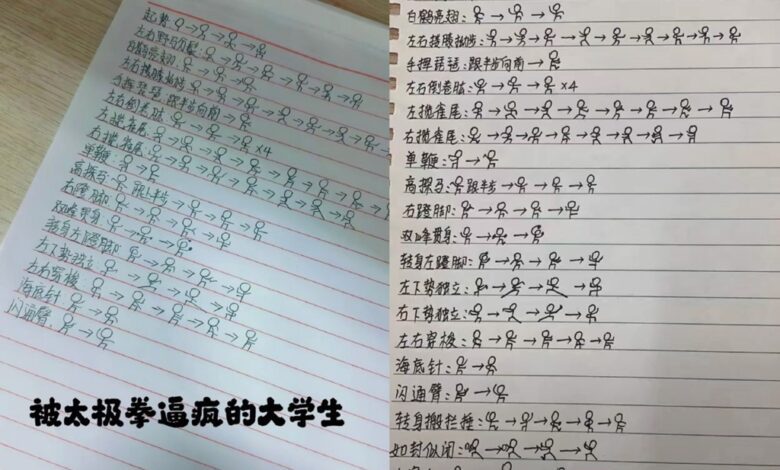 起势:
左右野马分鬃:
白鹤亮翅:
左右搂膝拗步:
手挥琵琶:跟半步向前
左右倒卷肱: ×4
左揽雀尾:
右揽雀尾:
单鞭:
高探马: 跟半步
右蹬脚:
双峰贯身:
转身左蹬脚
左下势独立:
左右穿梭:
海底针:
闪通臂:
被太极拳逼疯的大学生
白鹤亮翅:
左右搂膝拗步:
手挥琵琶:跟半步向前
左右倒卷肱: ×4
左揽雀尾:
右揽雀尾:
单鞭:
高探马: 跟半步
右蹬脚:
双峰贯身:
转身左蹬脚:
左下势独立:
右下势独立:
左右穿梭:
海底针:
闪通臂:
转身搬拦捶:
如封似闭: